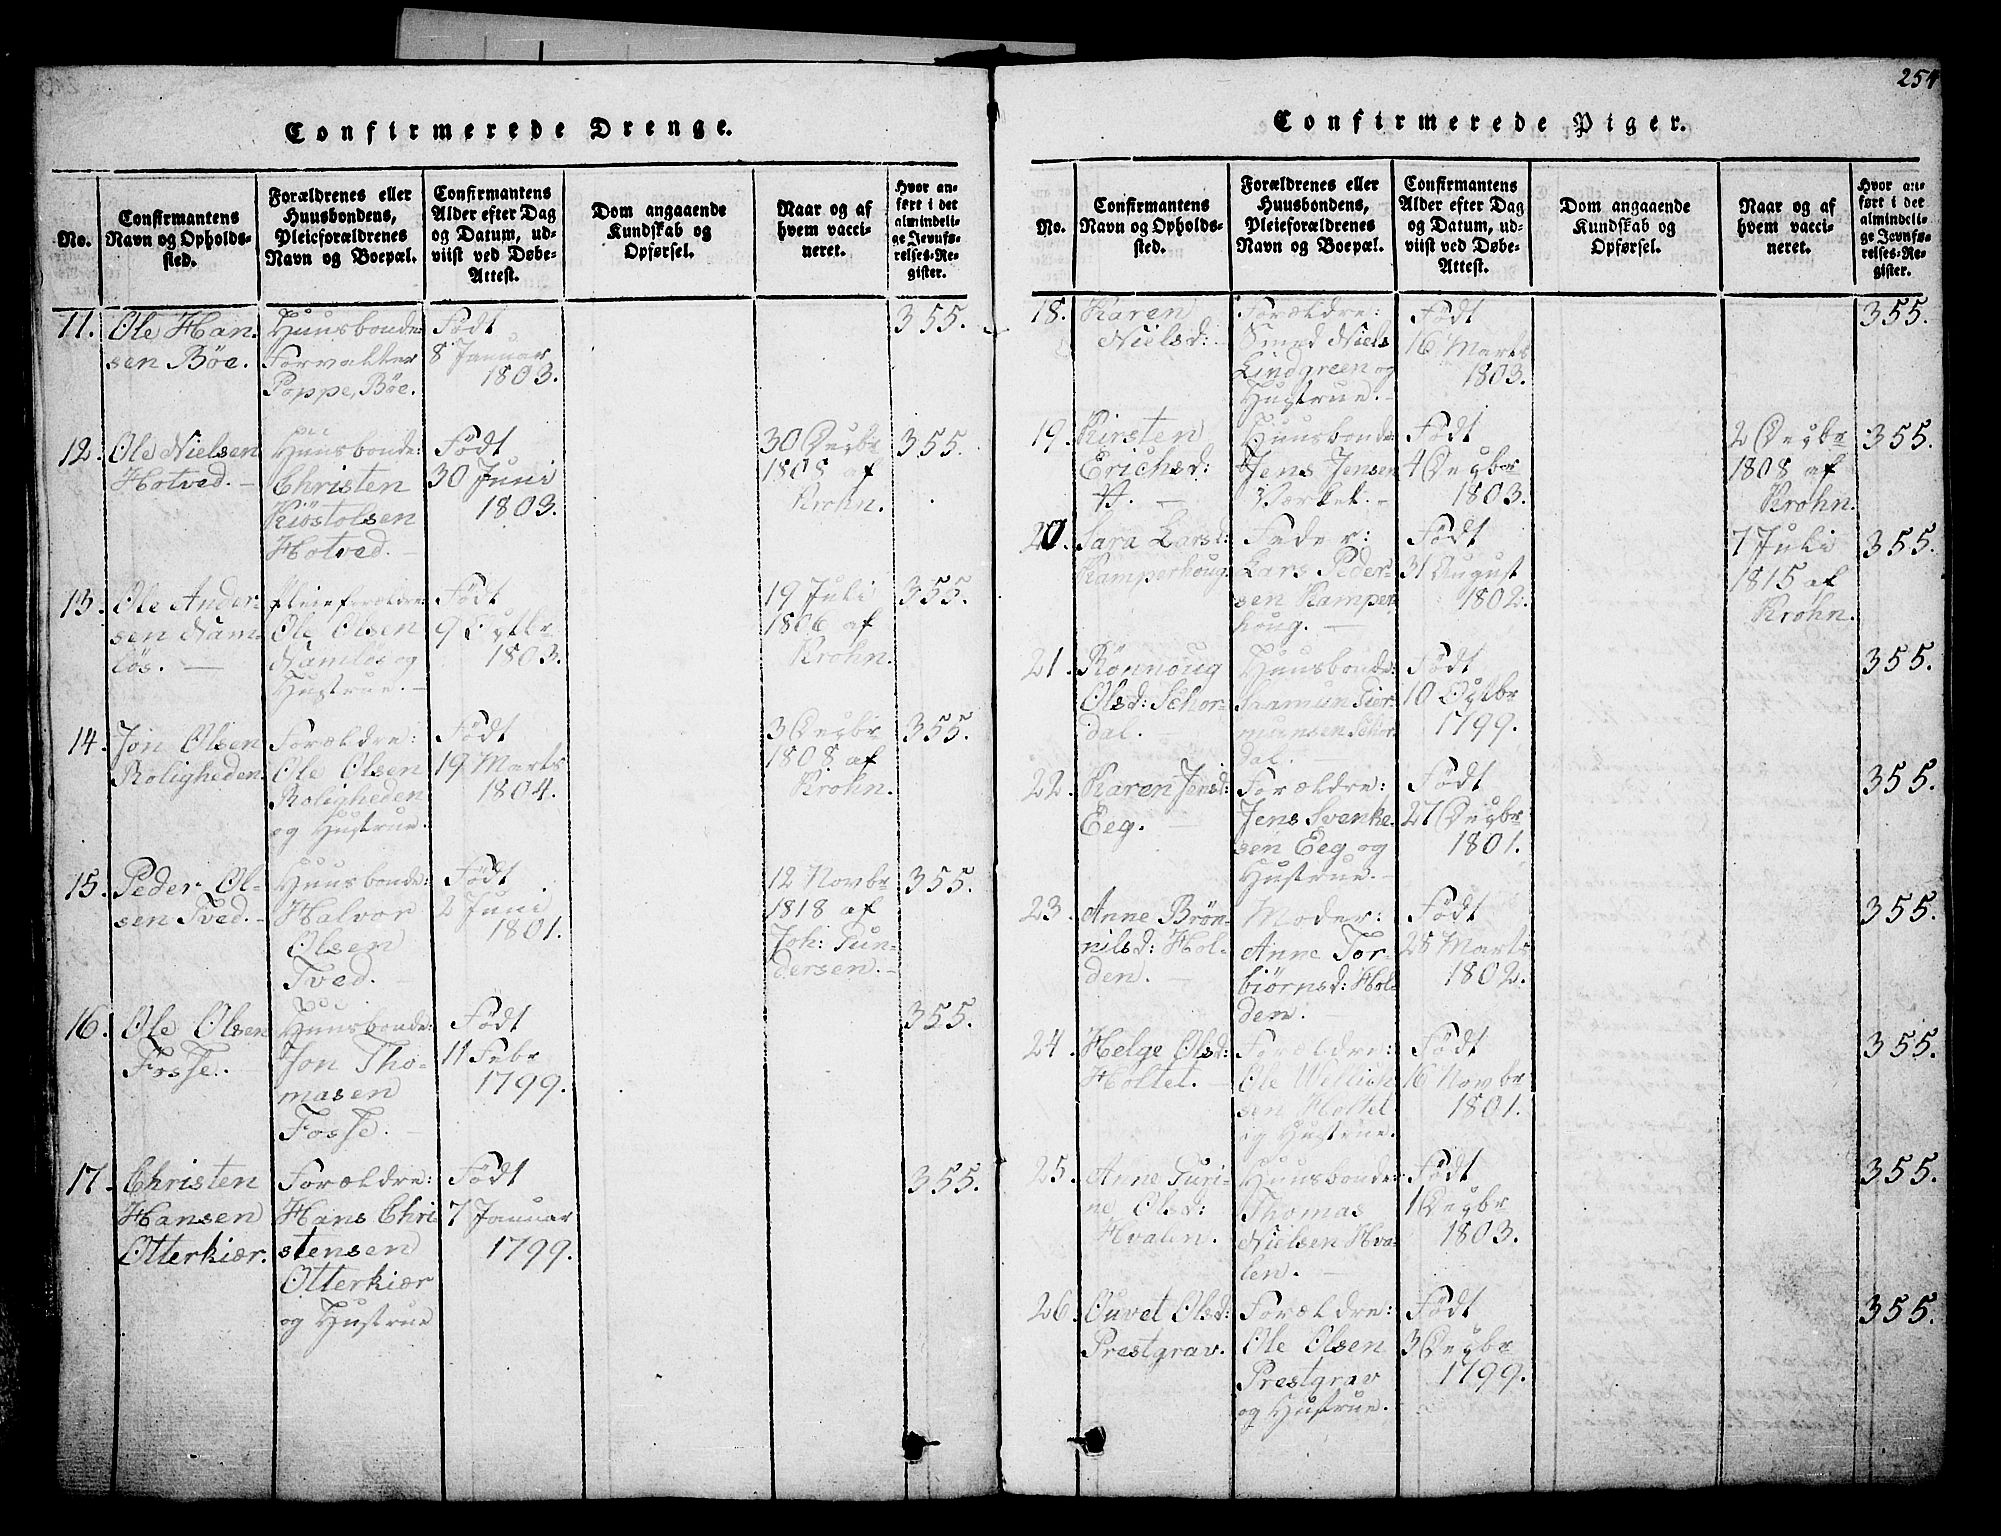 254
Confirmerede Drenge.
No.
Confirmantens
Navn og Opholds-
sted.
Forældrenes eller
Huusbondens,
Pleieforældrenes
Navn og Boepæl.
Confirmantens
Alder efter Dag
og Datum, ud-
viist ved Døbe-
Attest.
Dom angaaende
Kundskab og
Opførsel.
Naar og af
hvem vacci-
neret.
Hvor an-
ført i det
almindeli-
ge Jevnfø-
relses-Re-
gister.
11.
Ole Han-
sen Böe.
Huusbonde:
Forvalter
Poppe, Böe.
Født
8 Januar
1803.
355.
12.
Ole Nielsen
Hotved.
Huusbonde:
Christen
Kiöstolsen
Hotved.
Födt
30 Juni
1803.
30 Decbr
1808 af
Krohn.
355.
13.
Ole Ander-
sen Nam-
lös.
Pleieforældre:
Ole Olsen
Namlös og
Hustrue.
Födt
9 Octbr
1803.
19 Juli
1806 af
Krohn.
355.
14.
Jon Olsen
Roligheden
Forældre:
Ole Olsen
Roligheden
og Hustrue.
Födt
19 Marts
1804.
3 Decbr
1808 af
Krohn.
355.
15.
Peder Ol-
sen Tved.
Huusbonde:
Halvor
Olsen
Tved.
Födt
2 Juni
1801.
12 Novbr
1818 af
Joh: Gun-
dersen.
355.
16.
Ole Olsen
Fosse.
Huusbonde:
Jon Tho-
masen
Fosse.
Födt
11 Febr
1799.
355.
17.
Christen
Hansen
Otterkiær.
Forældre:
Hans Chri
stensen
Otterkiær
og Hustrue
Födt
7 Januar
1799.
355.
Confirmerede Piger.
No.
Confirmantens
Navn og Opholds-
sted.
Forældrenes eller
Huusbondens,
Pleieforældrenes
Navn og Boepæl.
Confirmantens
Alder efter Dag
og Datum, ud-
viist ved Døbe-
Attest.
Dom angaaende
Kundskab og
Opførsel.
Naar og af
hvem vacci-
neret.
Hvor an-
ført i det
almindeli-
ge Jevnfø-
relses-Re-
gister.
18.
Karen
Nielsd:
Forældre:
Smed Niels
Lindgreen og
Hustrue.
Födt
16 Marts
1803.
355.
19.
Kirsten
Erichsd:
Huusbonde:
Jens Jensen
Værket.
Födt
4 Decbr
1803.
2 Decbr
1808 af
Krohn.
355.
20.
Sara Larsd:
Kamperhoug.
Fader:
Lars Peder-
sen Kamper
houg.
Födt
31 August
1802.
7 Juli
1815 af
Krohn.
355.
21.
Rönnoug
Olsd: Schor-
dal.
Huusbonde:
Saamun
munsen Schor
dal.
Födt
10 Octbr
1799.
355.
22.
Karen Jensd:
Eeg.
Forældre:
Jens Svenke
sen Eeg og
Hustrue.
Födt
27 Decbr
1801.
355.
23.
Anne Brön-
nilsd: Hol-
den.
Moder:
Anne Tor-
biörnsd: Hol-
den.
Födt
28 Marts
1802.
355.
24.
Helge Olsd:
Holtet.
Forældre:
Ole
sen Holtet
og Hustrue.
Födt
16 Novbr
1801.
355.
25.
Anne Guri-
ne Olsd:
Hvalen.
Huusbonde:
Thomas
Nielsen Hva-
len.
Födt
1 Decbr
1803.
355.
26.
Ouvet Olsd:
Prestgrav.
Forældre:
Ole Olsen
Prestgrav
og Hustrue.
Födt
3 Decbr
1799.
355.